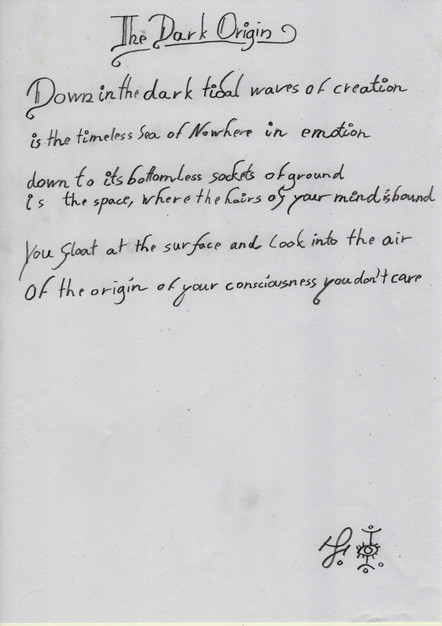 The Dark Origin
Down in the dark tidal waves of creation
is the timeless Sea of Nowhere in emotion
down to its bottomless sockets of ground
is the space, where the hairs of your mind is bound
You float at the surface and look into the air
Of the origin of your consciousness you don't care